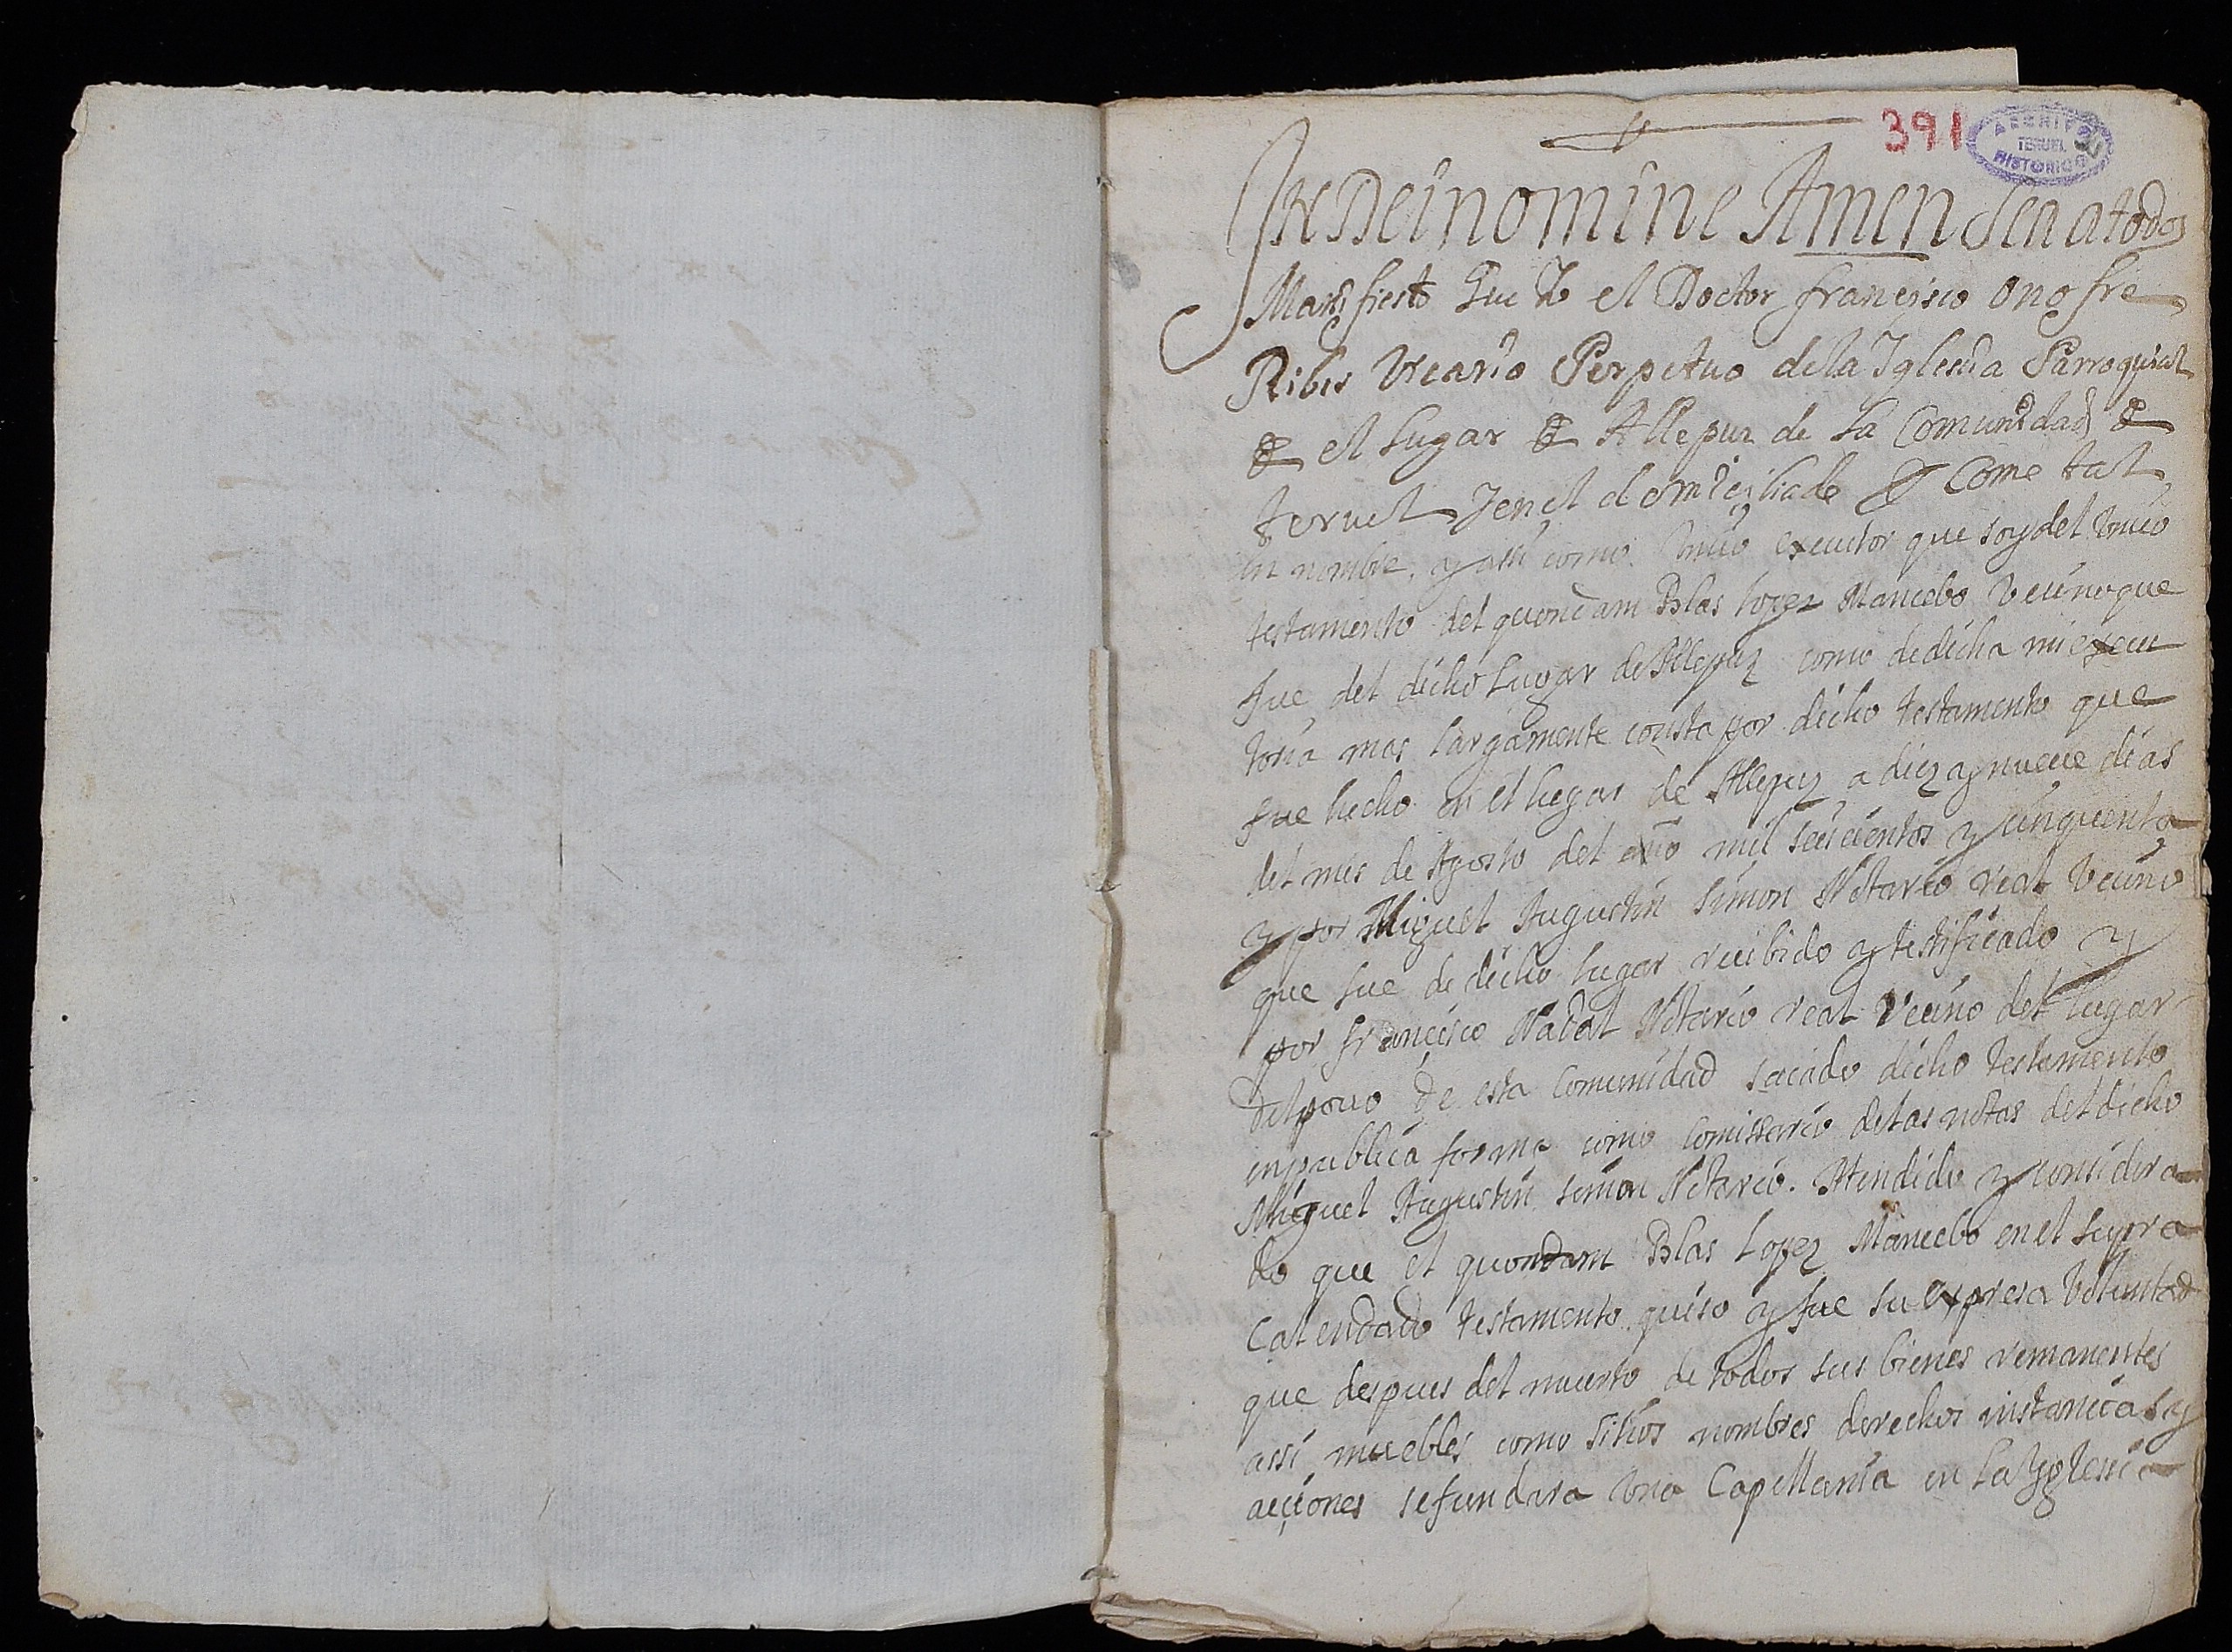 391
ARCHIVO
TERUEL
HISTORICO
IN Dei nomine Amen Sea a todos
Manifiesto Que Yo el Doctor francisco Onofre
Ribes Vicario Perpetuo de la Iglesia Parroquial
de el Lugar de Allepuz de la Comunidad de
teruel Y en el domiciliado Y Come tal
en nombre, y assi como Unico executor que soy del Unico
testamento del quondam Blas Lopez Mancebo Vecino que
fue del dicho Lugar de Allepuz como de dicha mi execu
toria mas largamente consta por dicho testamento que
fue hecho en el lugar de Allepuz a diez y nueue dias
del mes de Agosto del año mil seiscientos y cinquenta
y por Miguel Augustin Simon Notario real Vecino
que fue de dicho lugar recibido y testificado y
por francisco Nadal Notario real Vecino del lugar
del pouo de esta Comunidad sacado dicho testamento
en publica forma como Comissario de las notas del dicho
Miguel Augustin Simon Notario. Atendido y considera
do que el quondam Blas Lopez Mancebo en el supra
Calendado testamento quiso y fue su expresa Voluntad
que despues del muerto de todos sus bienes remanentes
assi muebles como sitios nombres derechos instancias y
acciones se fundara una Capellania en la Yglesia